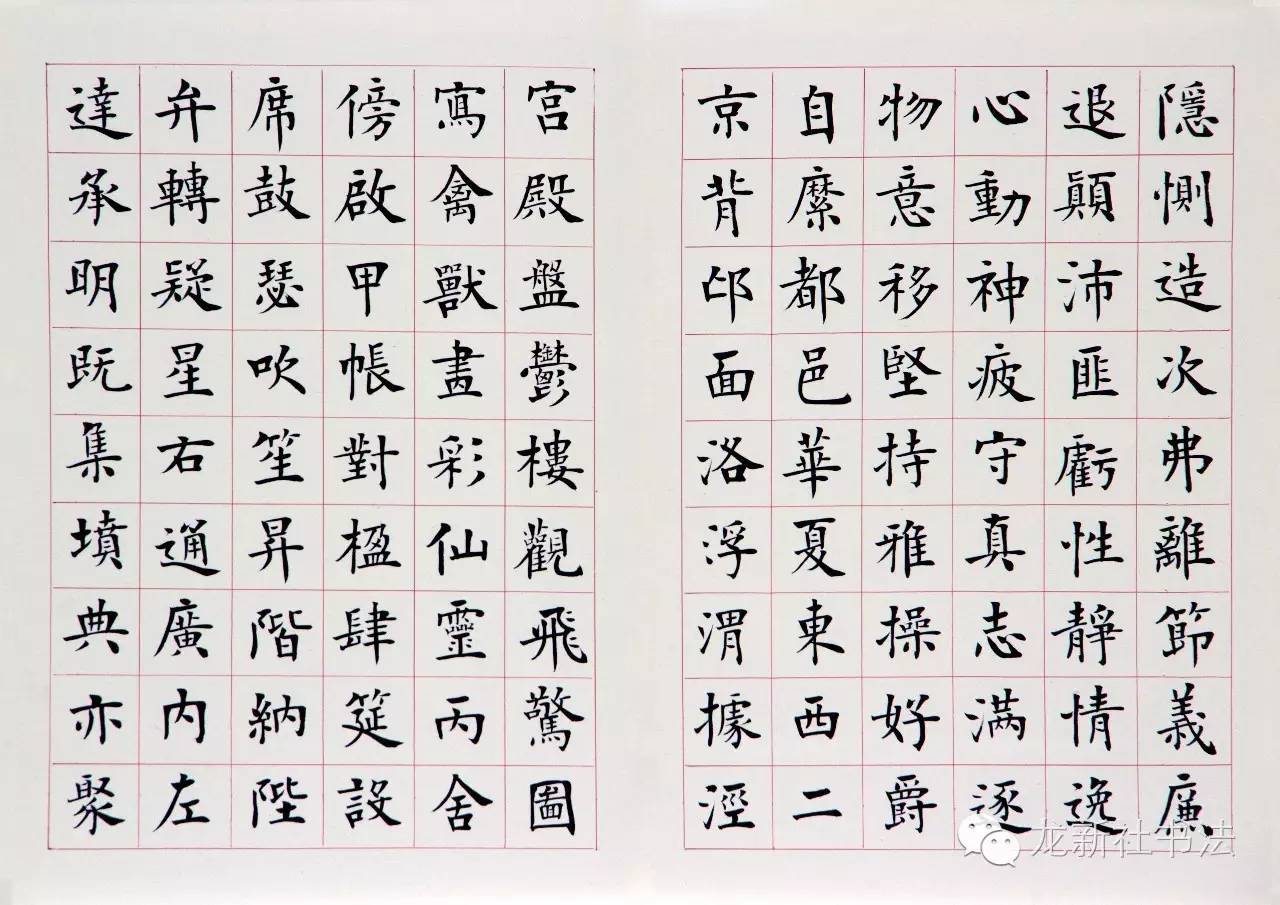 隱惻造次弗離節義廉
退顛沛匪虧性靜情逸
心動神疲守真志滿逐
物意移堅持雅操好爵
自縻都邑華夏東西二
京背邙面洛浮渭據涇
宮殿盤鬱樓觀飛驚圖
寫禽獸畫彩仙靈丙舍
傍啟甲帳對楹肆筵設
席鼓瑟吹笙昇階納陛
弁轉疑星右通廣內左
達承明既集墳典亦聚
龙新社书法